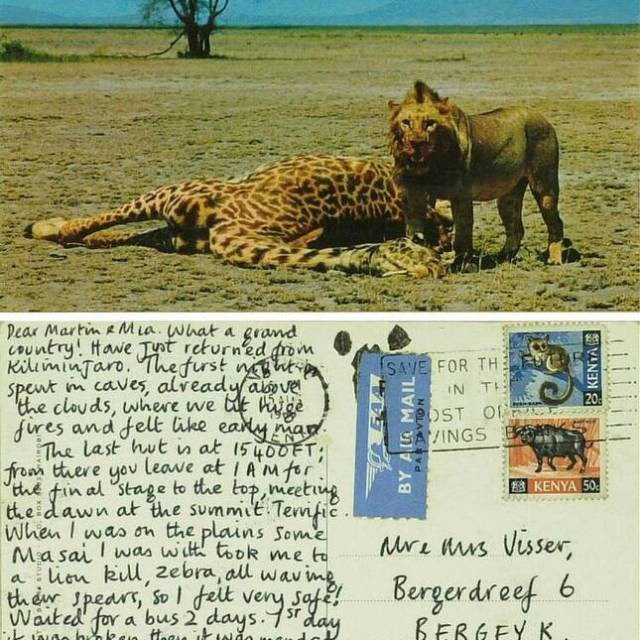 Dear Martin & Mia. What a grand
country! Have just returned from
Kiliminjaro. The first night is
spent in caves, already above
the clouds, where we lit huge
fires and felt like early man.
The last hut is at 15400FT;
from there you leave at 1 AM for
the final stage to the top, meeting
the dawn at the summit. Terrific.
When I was on the plains some
Masai I was with took me to
a lion kill, zebra, all waving
their spears, so I felt very safe!
Waited for a bus 2 days. 1ST day
it was broken, then it was
BY AIR MAIL
PAR AVION
SAVE FOR THE
IN THE
POST OFFICE
SAVINGS
KENYA
20c
KENYA 50c
Mr & Mrs Visser,
Bergerdreef 6
BERGEYK.